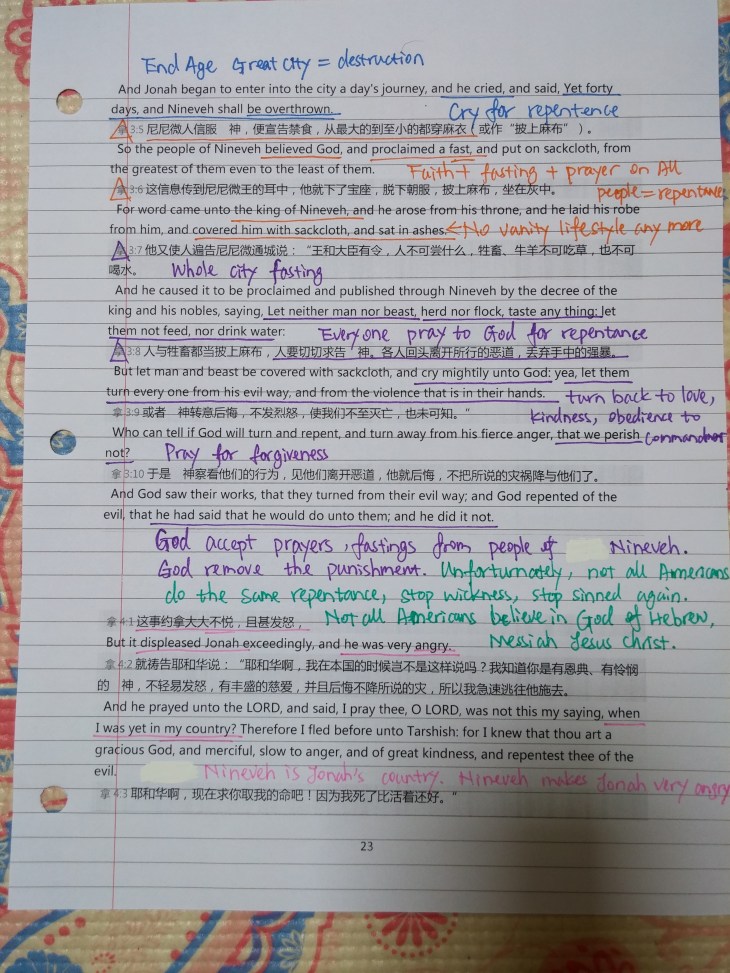 End Age Great city = destruction
And Jonah began to enter into the city a day's journey, and he cried, and said, Yet forty
days, and Nineveh shall be overthrown.
Cry for repentence
拿 3:5 尼尼微人信服 神，便宣告禁食，从最大的到至小的都穿麻衣（或作“披上麻布”）。
So the people of Nineveh believed God, and proclaimed a fast, and put on sackcloth, from
the greatest of them even to the least of them.
Faith + fasting + prayer on All
people = repentance
拿 3:6 这信息传到尼尼微王的耳中，他就下了宝座，脱下朝服，披上麻布，坐在灰中。
For word came unto the king of Nineveh, and he arose from his throne, and he laid his robe
from him, and covered him with sackcloth, and sat in ashes.
← No vanity lifestyle any more
拿 3:7 他又使人遍告尼尼微通城说：“王和大臣有令，人不可尝什么，牲畜、牛羊不可吃草，也不可
喝水。
Whole city fasting
And he caused it to be proclaimed and published through Nineveh by the decree of the
king and his nobles, saying, Let neither man nor beast, herd nor flock, taste any thing: let
them not feed, nor drink water:
Everyone pray to God for repentance
拿 3:8 人与牲畜都当披上麻布，人要切切求告 神。各人回头离开所行的恶道，丢弃手中的强暴。
But let man and beast be covered with sackcloth, and cry mightily unto God: yea, let them
turn every one from his evil way, and from the violence that is in their hands.
turn back to love,
kindness, obedience to
拿 3:9 或者 神转意后悔，不发烈怒，使我们不至灭亡，也未可知。”
Who can tell if God will turn and repent, and turn away from his fierce anger, that we perish
not?
Pray for forgiveness
拿 3:10 于是 神察看他们的行为，见他们离开恶道，他就后悔，不把所说的灾祸降与他们了。
And God saw their works, that they turned from their evil way; and God repented of the
evil, that he had said that he would do unto them; and he did it not.
God accept prayers, fastings from people of Nineveh.
God remove the punishment. Unforturnately, not all Americans
do the same repentance, stop wickness, stop sinned again.
拿 4:1 这事约拿大大不悦，且甚发怒，
Not all Americans believe in God of Hebrew,
But it displeased Jonah exceedingly, and he was very angry.
Messiah Jesus Christ.
拿 4:2 就祷告耶和华说：“耶和华啊，我在本国的时候岂不是这样说吗？我知道你是有恩典、有怜悯
的 神，不轻易发怒，有丰盛的慈爱，并且后悔不降所说的灾，所以我急速逃往他施去。
And he prayed unto the LORD, and said, I pray thee, O LORD, was not this my saying, when
I was yet in my country? Therefore I fled before unto Tarshish: for I knew that thou art a
gracious God, and merciful, slow to anger, and of great kindness, and repentest thee of the
evil.
Nineveh is Jonah's country. Nineveh makes Jonah very angry
拿 4:3 耶和华啊，现在求你取我的命吧！因为我死了比活着还好。”
23